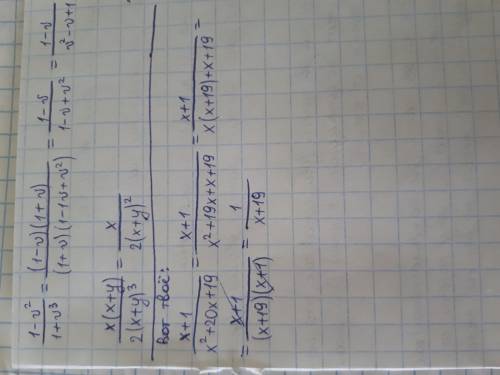 1-v²/1+v³ = (1-v)(1+v)/(1+v)(1-1v+v²) = 1-v/1-v+v² = 1-v/v²-v+1
x(x+y)/2(x+y)³ = x/2(x+y)²
Вот твоё:
x+1/x²+20x+19 = x+1/x²+19x+x+19 = x+1/x(x+19)+x+19 =
= x+1/(x+19)(x+1) = 1/x+19